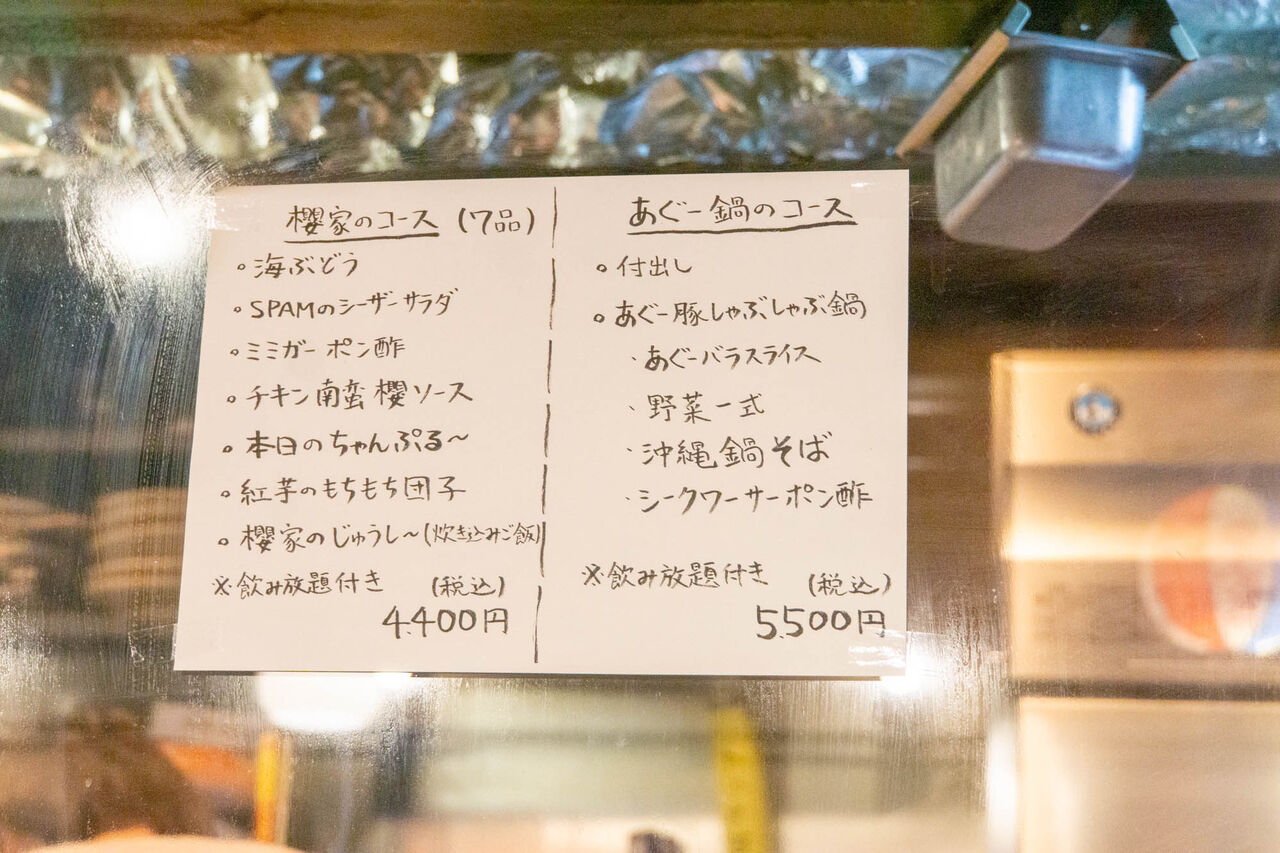 櫻家のコース (7品)
◦海ぶどう
◦SPAMのシーザーサラダ
◦ミミガーポン酢
◦チキン南蛮 櫻ソース
◦本日のちゃんぷる〜
◦紅芋のもちもち団子
◦櫻家のじゅうし〜(炊き込みご飯)
※飲み放題付き (税込)
4,400円
あぐー鍋のコース
◦付出し
◦あぐー豚しゃぶしゃぶ鍋
・あぐーバラスライス
・野菜一式
・沖縄鍋そば
・シークワーサーポン酢
※飲み放題付き (税込)
5,500円